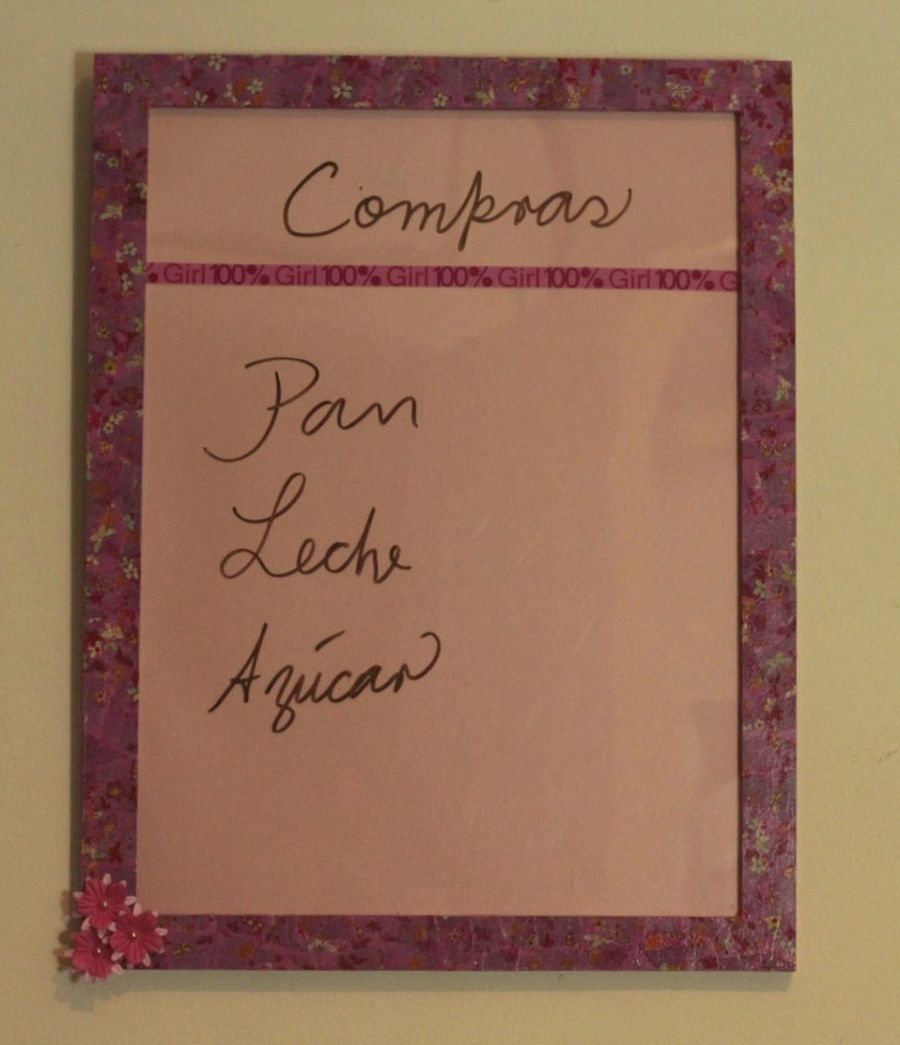 Compras
% Girl 100% Girl 100% Girl 100% Girl 100% Girl 100% G
Pan
Leche
Azúcar